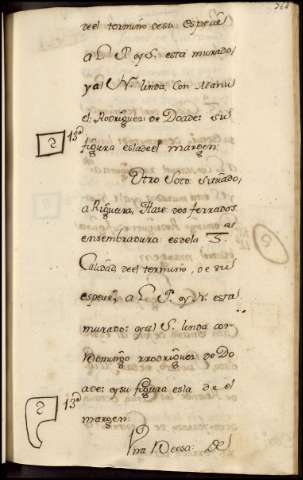 de el termino de su especie
a L. P. y S. esta murado
y a N. linda, con Manu
el Rodriguez de Doade: su
figura es la de el margen
13ª
2
Otro Soto situado
a Riguera, Haze dos ferrados
en sembradura es de la 3ª
Calidad de el termino, de su
espeçie, a L. P. y N. esta
murado: y al S. linda con
Domingo rrodriguez de Do
ade: y su figura es la de el
13ª
2
margen
Una Deesa de